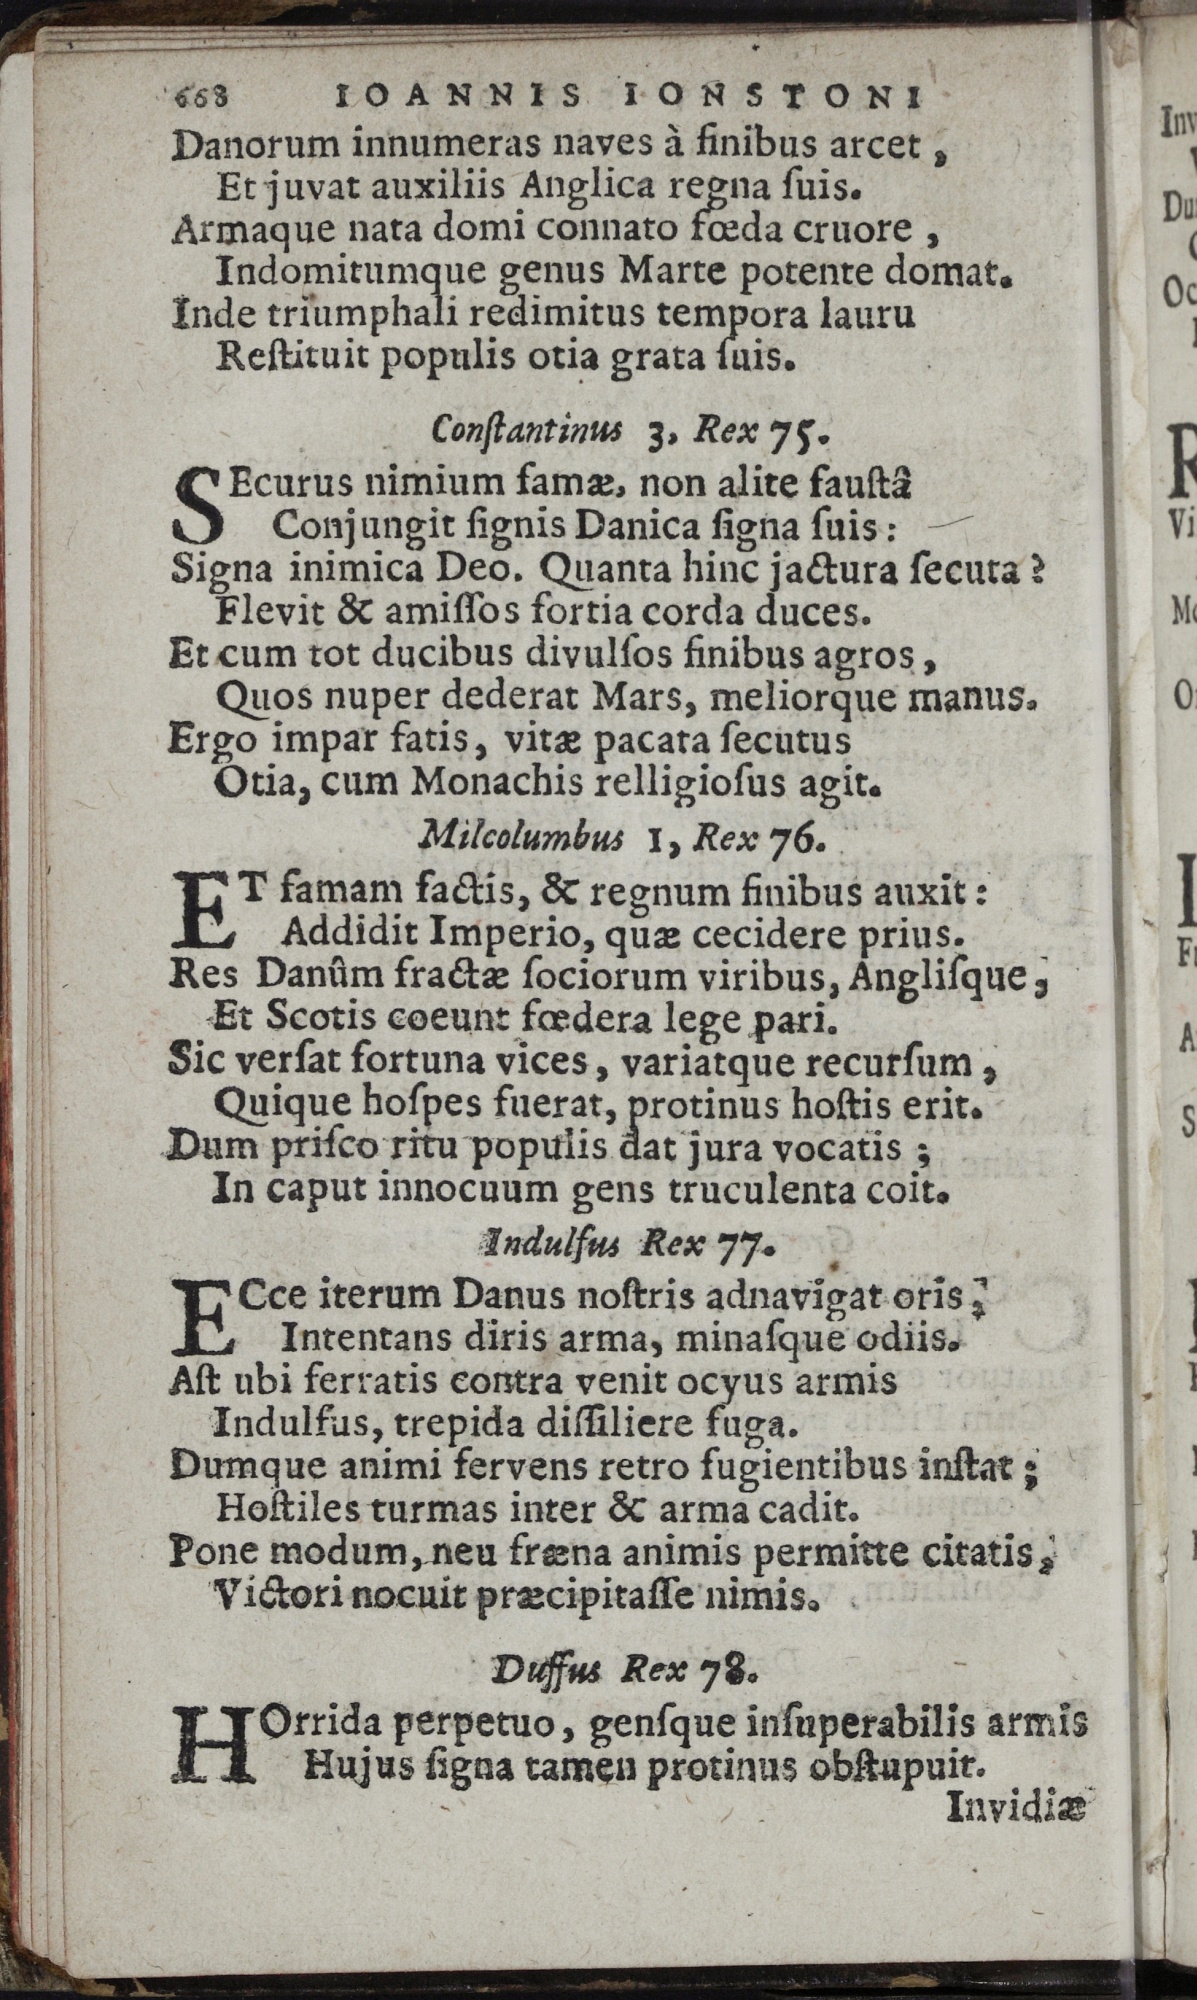 668 IOANNIS IONSTONI
Danorum innumeras naves à finibus arcet,
Et juvat auxiliis Anglica regna ſuis.
Armaque nata domi connato fœda cruore,
Indomitumque genus Marte potente domat.
Inde triumphali redimitus tempora lauru
Reſtituit populis otia grata ſuis.
Conſtantinus 3, Rex 75.
SEcurus nimium famæ, non alite fauſtâ
Conjungit ſignis Danica ſigna ſuis:
Signa inimica Deo. Quanta hinc jactura ſecuta?
Flevit & amiſſos fortia corda duces.
Et cum tot ducibus divulſos finibus agros,
Quos nuper dederat Mars, meliorque manus.
Ergo impar fatis, vitæ pacata ſecutus
Otia, cum Monachis relligioſus agit.
Milcolumbus 1, Rex 76.
ET famam factis, & regnum finibus auxit:
Addidit Imperio, quæ cecidere prius.
Res Danûm fractæ ſociorum viribus, Angliſque,
Et Scotis coeunt fœdera lege pari.
Sic verſat fortuna vices, variatque recurſum,
Quique hoſpes fuerat, protinus hoſtis erit.
Dum priſco ritu populis dat jura vocatis;
In caput innocuum gens truculenta coit.
Indulfus Rex 77.
ECce iterum Danus noſtris adnavigat oris,
Intentans diris arma, minaſque odiis.
Aſt ubi ferratis contra venit ocyus armis
Indulfus, trepida diſſiliere fuga.
Dumque animi fervens retro fugientibus inſtat;
Hoſtiles turmas inter & arma cadit.
Pone modum, neu fræna animis permitte citatis,
Victori nocuit præcipitaſſe nimis.
Duffus Rex 78.
HOrrida perpetuo, genſque inſuperabilis armis
Hujus ſigna tamen protinus obſtupuit.
Invidiæ